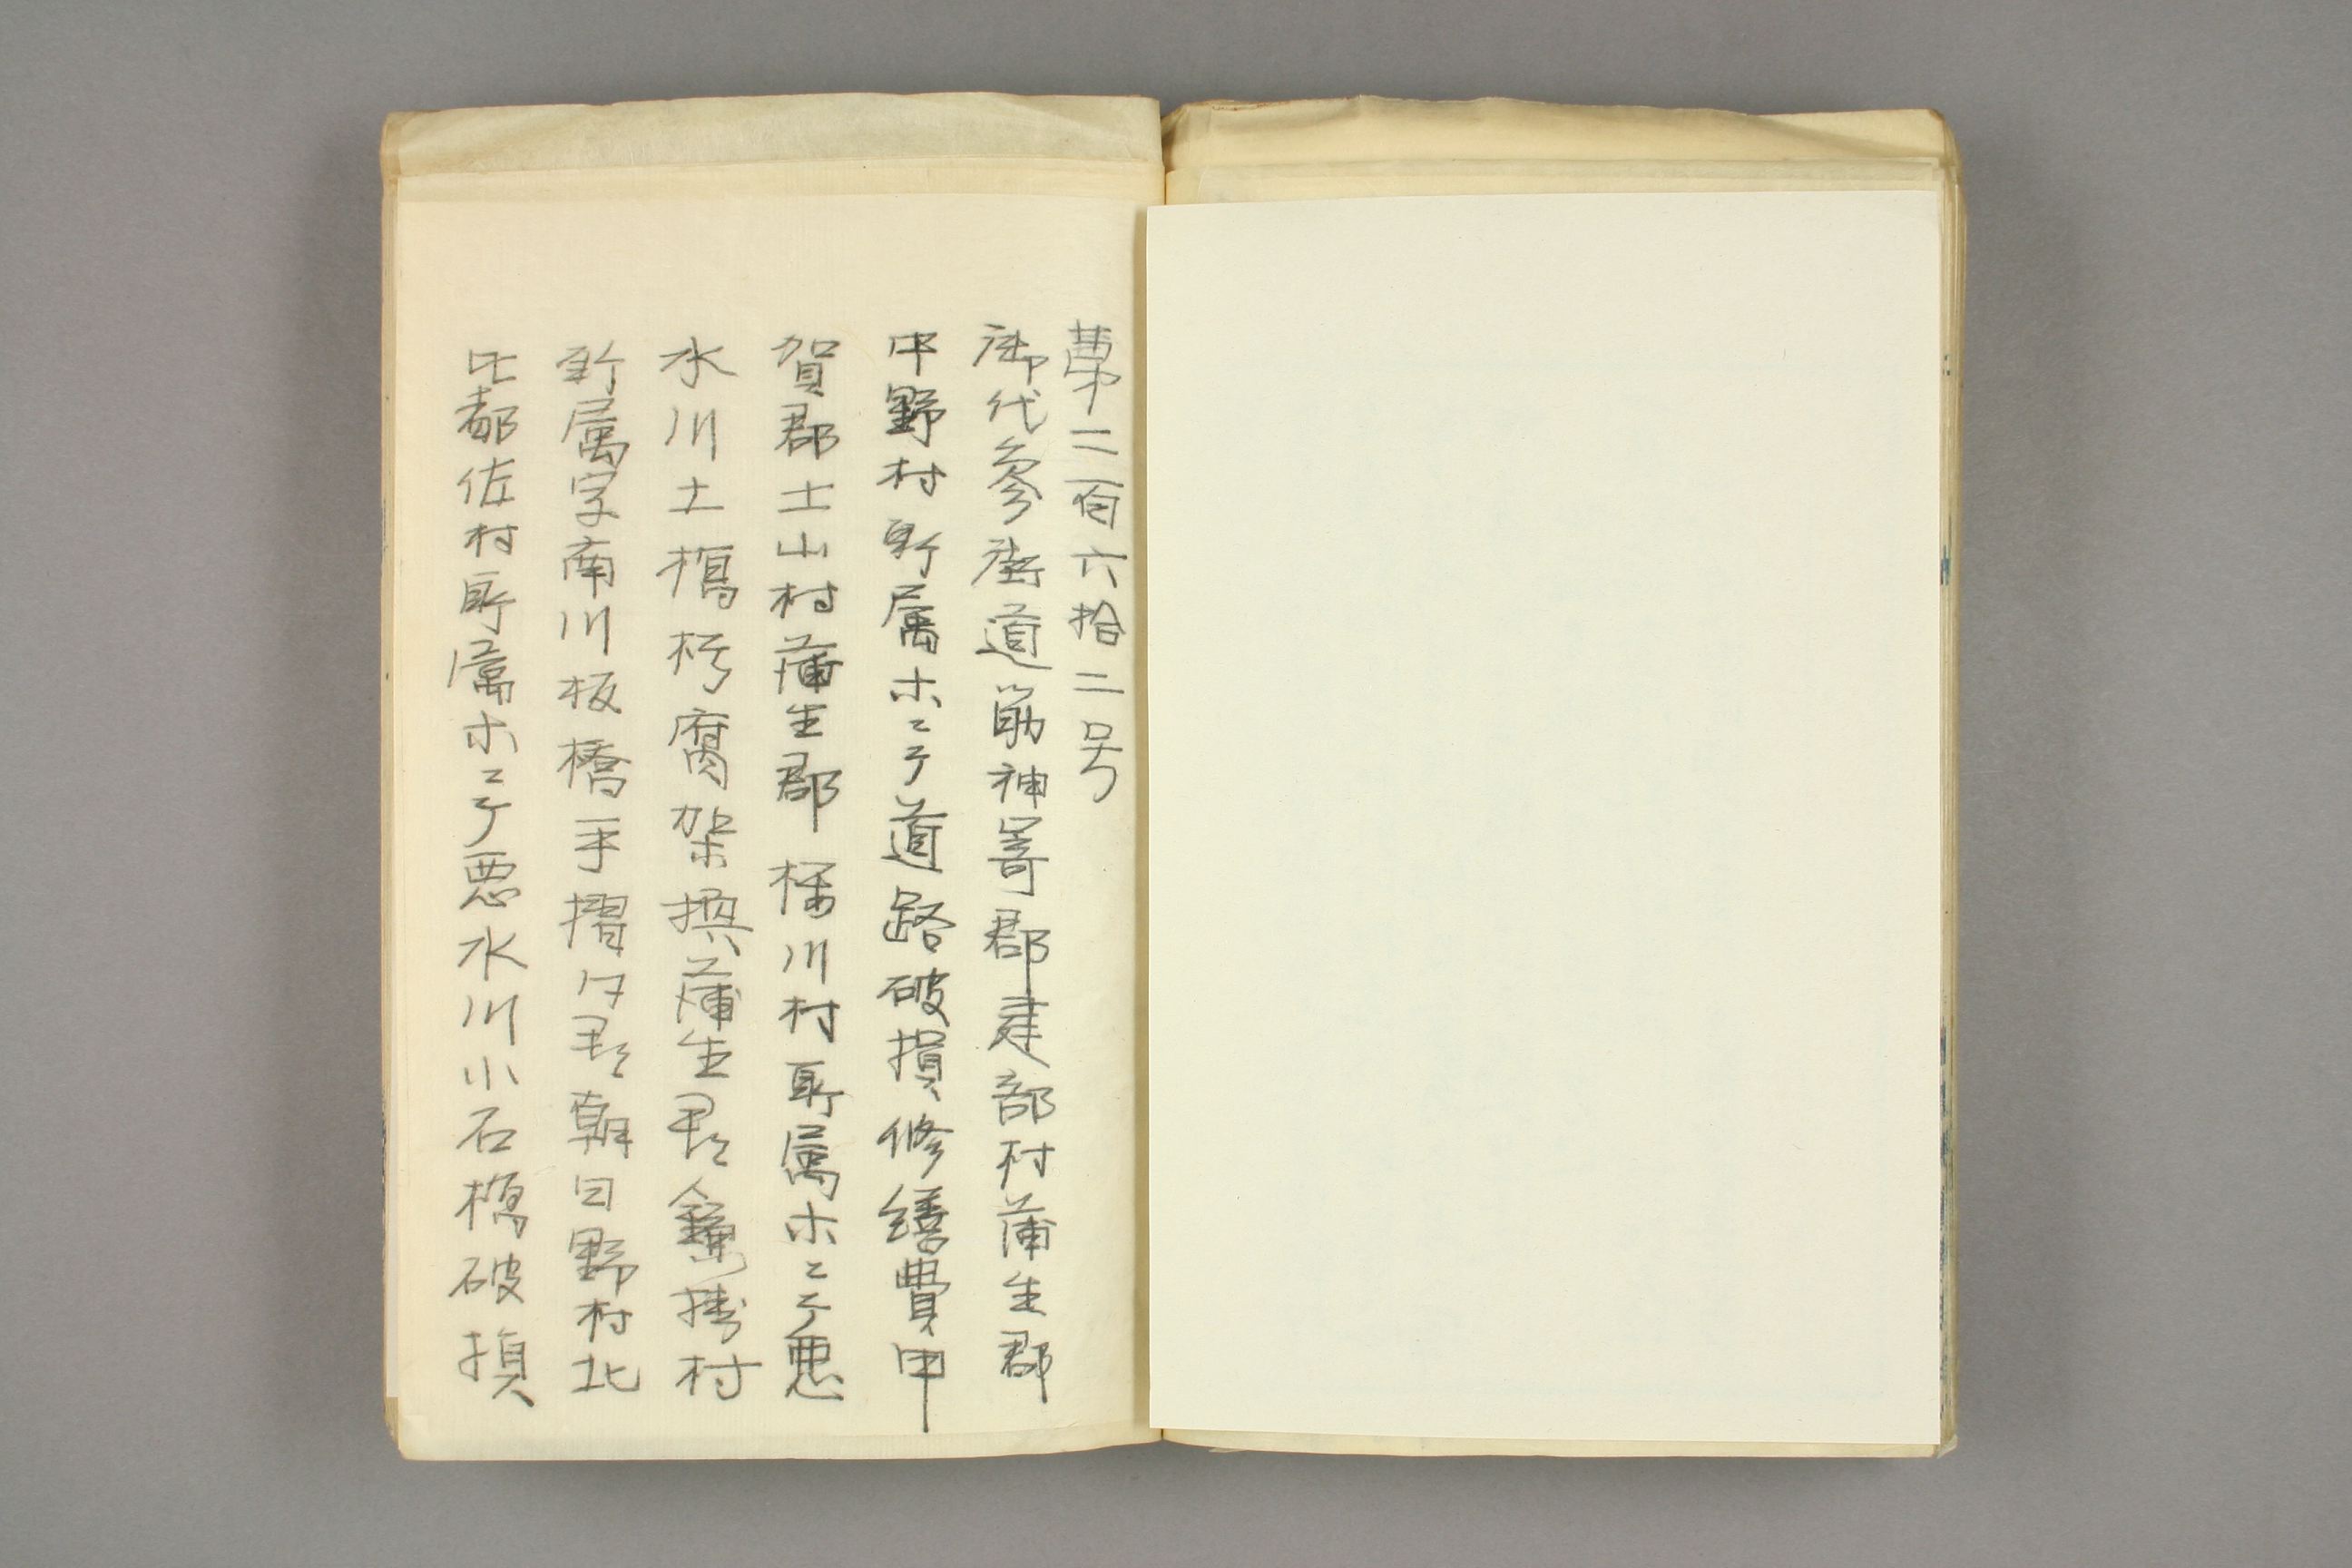 第二百六拾二号
御代参街道筋神㟢郡建部村蒲生郡
中野村所属ホニ于道路破損修繕費甲
賀郡土山村蒲生郡桜川村所属ホニ于悪
水川土橋朽腐架換蒲生郡鎌掛村
所属字南川板橋手摺仝郡朝日野村北
比都佐村所属ホニ于悪水川小石橋破損